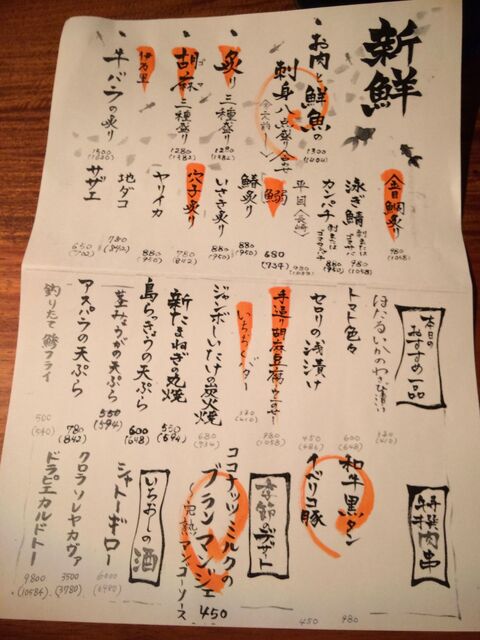 新鮮
・お肉と鮮魚の
刺身八点盛り合せ
1300
(1404)
・炙り三種盛り
1280
(1382)
・胡麻三種盛り
1280
(1382)
伊万里
・牛バラの炙り
1500
(1620)
金目鯛炙り
980
(1058)
泳ぎ鯖
980
(1058)
カンパチ
880
(950)
平目(長崎)
980
鰯
680
(734)
鰆炙り
880
(950)
いさき炙り
880
(950)
穴子炙り
780
(842)
ヤリイカ
880
(950)
地ダコ
780
(842)
サザエ
650
(702)
本日の
おすすめ一品
ほたるいかのわさび漬け
380
(410)
トマト色々
600
(648)
セロリの浅漬け
450
(486)
手造り胡麻豆腐
980
(1058)
いちおしバター
380
(410)
ジャンボしいたけの炭火焼
680
(734)
新たまねぎの丸焼
550
(594)
島らっきょうの天ぷら
600
(648)
茎みょうがの天ぷら
550
(594)
アスパラの天ぷら
780
(842)
釣りたて鯵フライ
500
(540)
肉串
和牛黒タン
980
イベリコ豚
450
季節のデザート
ココナッツミルクの
ブランマンジェ
(完熟マンゴーソース)
450
いちおしの酒
シャトーギロー
6000
(6480)
クロラソレヤカヴァ
3500
(3780)
ドラピエカルドドー
9800
(10584)